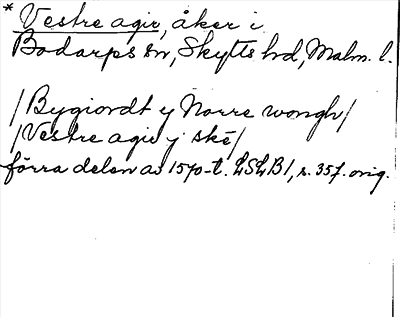 * Vestre agir, åker i
Bodarps sn, Skytts hd, Malm. l.
/Bygiordt y Norre wongh/
/Vestre agir y skē/
förra delen av 1570-t. LSLB1, s. 357. orig.